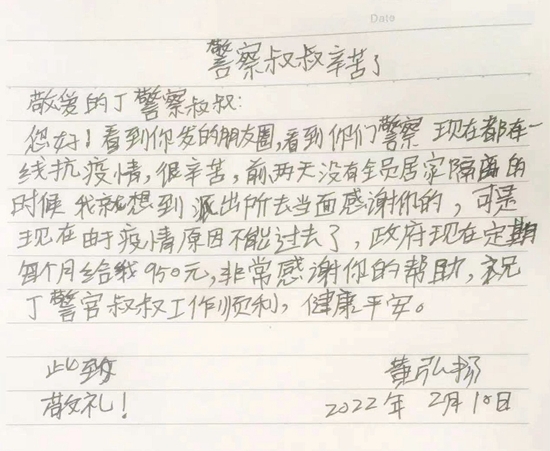 Date
警察叔叔辛苦了
敬爱的丁警察叔叔：
您好！看到你发的朋友圈，看到你们警察 现在都在一
线抗疫情，很辛苦，前两天没有全员居家隔离的
时候 我就想到 派出所去当面感谢你的，可是
现在由于疫情原因不能过去了，政府现在定期
每个月给我950元，非常感谢你的帮助，祝
丁警官叔叔工作顺利，健康平安。
此致 董弘扬
敬礼！ 2022年 2月10日